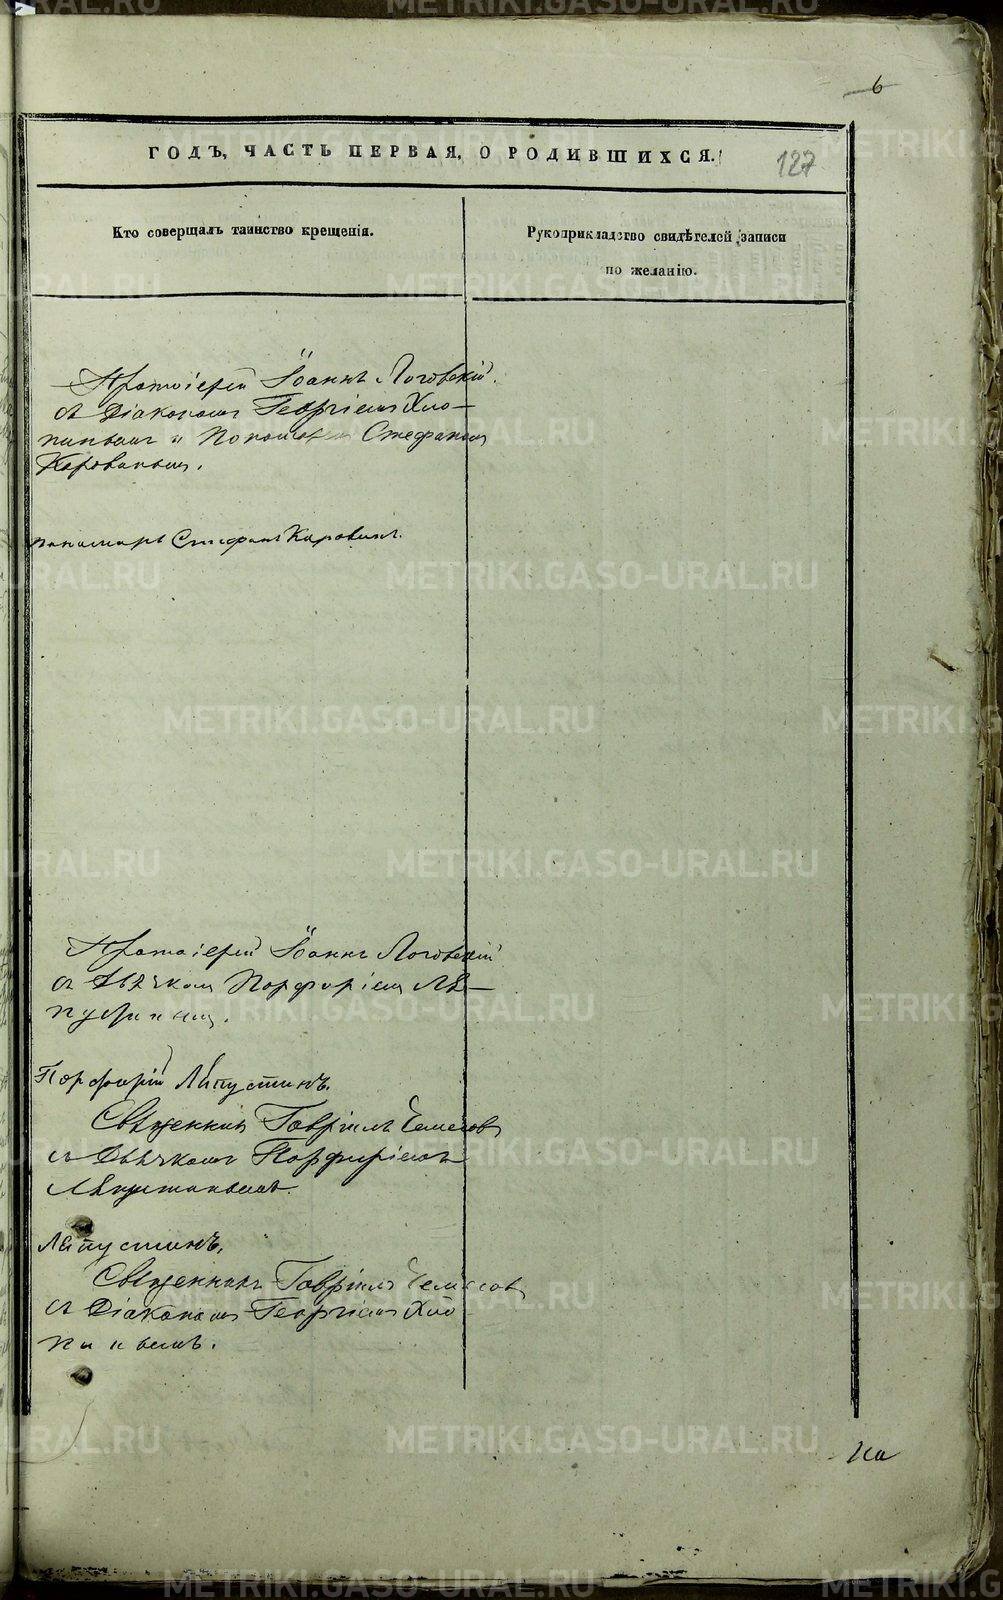 6
ГОДЪ, ЧАСТЬ ПЕРВАЯ, О РОДИВШИХСЯ.
127
Кто совершалъ таинство крещенія.
Рукоприкладство свидѣтелей записи
по желанію.
Протоіерей Іоаннъ Логовскій
съ Діакономъ Георгіемъ Хло-
пинымъ и Стефаномъ
Коровинымъ.
пономарь Стефанъ Коровинъ.
Протоіерей Іоаннъ Логовскій
съ Дьячкомъ Порфиріемъ Ля-
пустинымъ.
Порфирій Ляпустинъ.
Священникъ Гавріилъ Чемесовъ
съ Дьячкомъ Порфиріемъ
Ляпустинымъ.
Ляпустинъ.
Священникъ Гавріилъ Чемесовъ
съ Діакономъ Георгіемъ Хло-
пинымъ.
На
METRIKI.GASO-URAL.RU